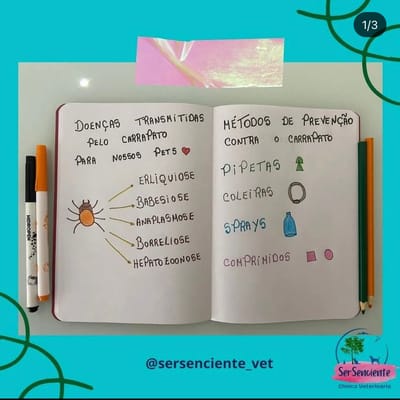 1/3
DOENÇAS TRANSMITIDAS
PELO CARRAPATO
PARA NOSSOS PETS
ERLIQUIOSE
BABESIOSE
ANAPLASMOSE
BORRELIOSE
HEPATOZOONOSE
MÉTODOS DE PREVENÇÃO
CONTRA O CARRAPATO
PIPETAS
COLEIRAS
SPRAYS
COMPRIMIDOS
@sersenciente_vet
SerSenciente
Clínica Veterinária